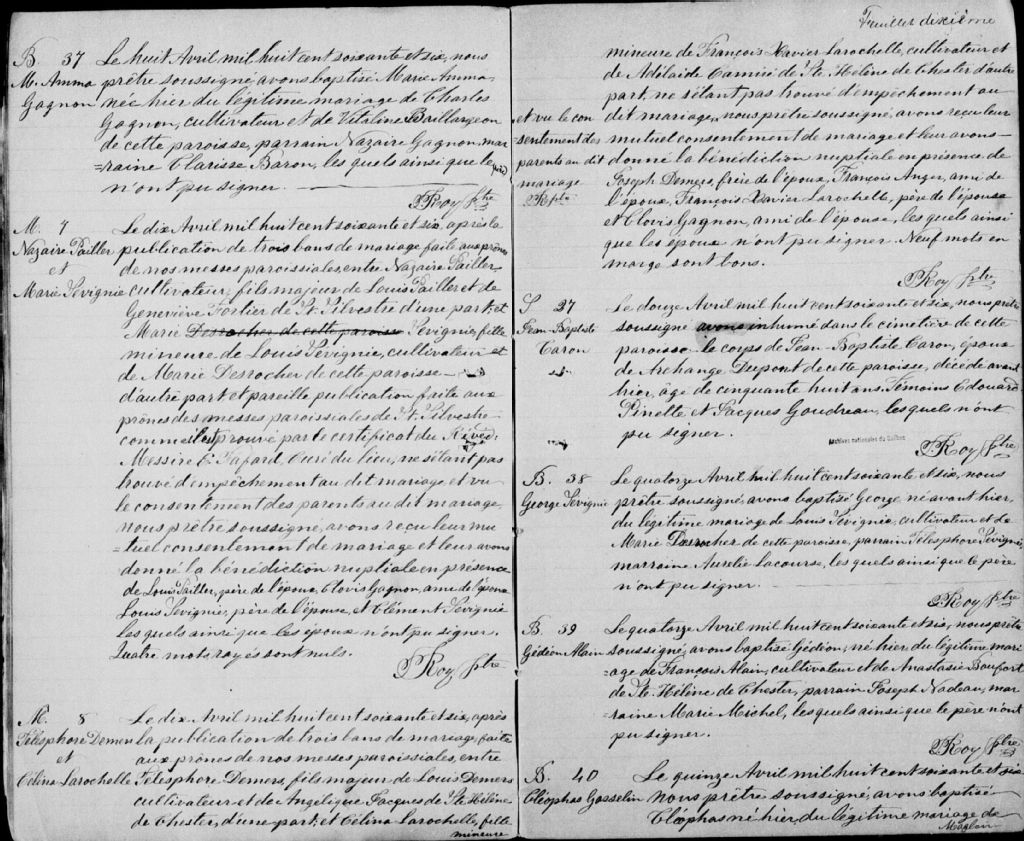 B. 37 Le huit Avril mil huit cent soixante et six, nous
M. Amma prêtre soussigné avons baptisé Marie Amma,
Gagnon née hier du légitime mariage de Charles
Gagnon, cultivateur et de Vitaline Baillargeon
de cette paroisse, parrain Nazaire Gagnon, mar
=raine Clarisse Baron, les quels ainsi que le père
n'ont pu signer.
Roy ptre
M. 7 Le dix Avril mil huit cent soixante et six, après la
Nazaire Pailler publication de trois bans de mariage faite aux prônes
et de nos messes paroissiales, entre Nazaire Pailler
Marie Sévignie cultivateur, fils majeur de Louis Pailler et de
Geneviève Fortier de St. Silvestre d'une part, et
Marie Desrocher de cette paroisse Sévignie, fille
mineure de Louis Sévignie, cultivateur et
de Marie Desrocher de cette paroisse
d'autre part et pareille publication faite aux
prônes des messes paroissiales de St. Silvestre
comme il est prouvé par le certificat du Révéd.
Messire E. Fafard, Curé du lieu, ne s'étant pas
trouvé d'empêchement au dit mariage et vu
le consentement des parents au dit mariage,
nous prêtre soussigné, avons reçu leur mu
=tuel consentement de mariage et leur avons
donné la bénédiction nuptiale en présence
de Louis Pailler, père de l'époux, Clovis Gagnon, ami de l'époux
Louis Sévignie, père de l'épouse, et Clément Sévignie
les quels ainsi que les époux n'ont pu signer.
Quatre mots rayés sont nuls.
Roy ptre
M. 8 Le dix Avril mil huit cent soixante et six, après
Télesphore Demers la publication de trois bans de mariage faite
et aux prônes de nos messes paroissiales, entre
Célina Larochelle Télesphore Demers, fils majeur de Louis Demers
cultivateur et de Angélique Jacques de Ste. Hélène
de Chester, d'une part, et Célina Larochelle, fille
mineure
Feuillet dixième
mineure de François Xavier Larochelle, cultivateur et
de Adélaide Camiré de Ste. Hélène de Chester d'autre
part, ne s'étant pas trouvé d'empêchement au
et vu le con dit mariage, nous prêtre soussigné, avons reçu leur
sentement des mutuel consentement de mariage et leur avons
parents au dit donné la bénédiction nuptiale en présence de
mariage Joseph Demers, frère de l'époux, François Anger, ami de
R. ptre l'époux, François Xavier Larochelle, père de l'épouse
et Clovis Gagnon, ami de l'épouse, les quels ainsi
que les époux n'ont pu signer. Neuf mots en
marge sont bons.
Roy ptre
S 27 Le douze Avril mil huit cent soixante et six, nous prêtre
Jean Baptiste soussigné avons inhumé dans le cimetière de cette
Caron paroisse le corps de Jean Baptiste Caron, époux
de Archange Dupont de cette paroisse, décédé avant
hier, âgé de cinquante huit ans. Témoins Edouard
Pinette et Jacques Goudreau, lesquels n'ont
pu signer.
Archives nationales du Québec
Roy ptre
B. 38 Le quatorze Avril mil huit cent soixante et six, nous
George Sévignie prêtre soussigné, avons baptisé George, né avant hier,
du légitime mariage de Louis Sévignie, cultivateur et de
Marie Desrocher de cette paroisse, parrain Télesphore Sévignie,
marraine Aurelie Lacourse, les quels ainsi que le père
n'ont pu signer.
Roy ptre
B. 39 Le quatorze Avril mil huit cent soixante et six, nous prêtre
Gédéon Alain soussigné, avons baptisé Gédéon, né hier du légitime mari
=age de François Alain, cultivateur et de Anastasie Boufort
de Ste. Hélène de Chester, parrain Joseph Nadeau, mar
=raine Marie Michel, les quels ainsi que le père n'ont
pu signer.
Roy ptre
B. 40 Le quinze Avril mil huit cent soixante et six
Cléophas Gosselin nous prêtre soussigné, avons baptisé
Cléophas né hier, du légitime mariage de
Magloire